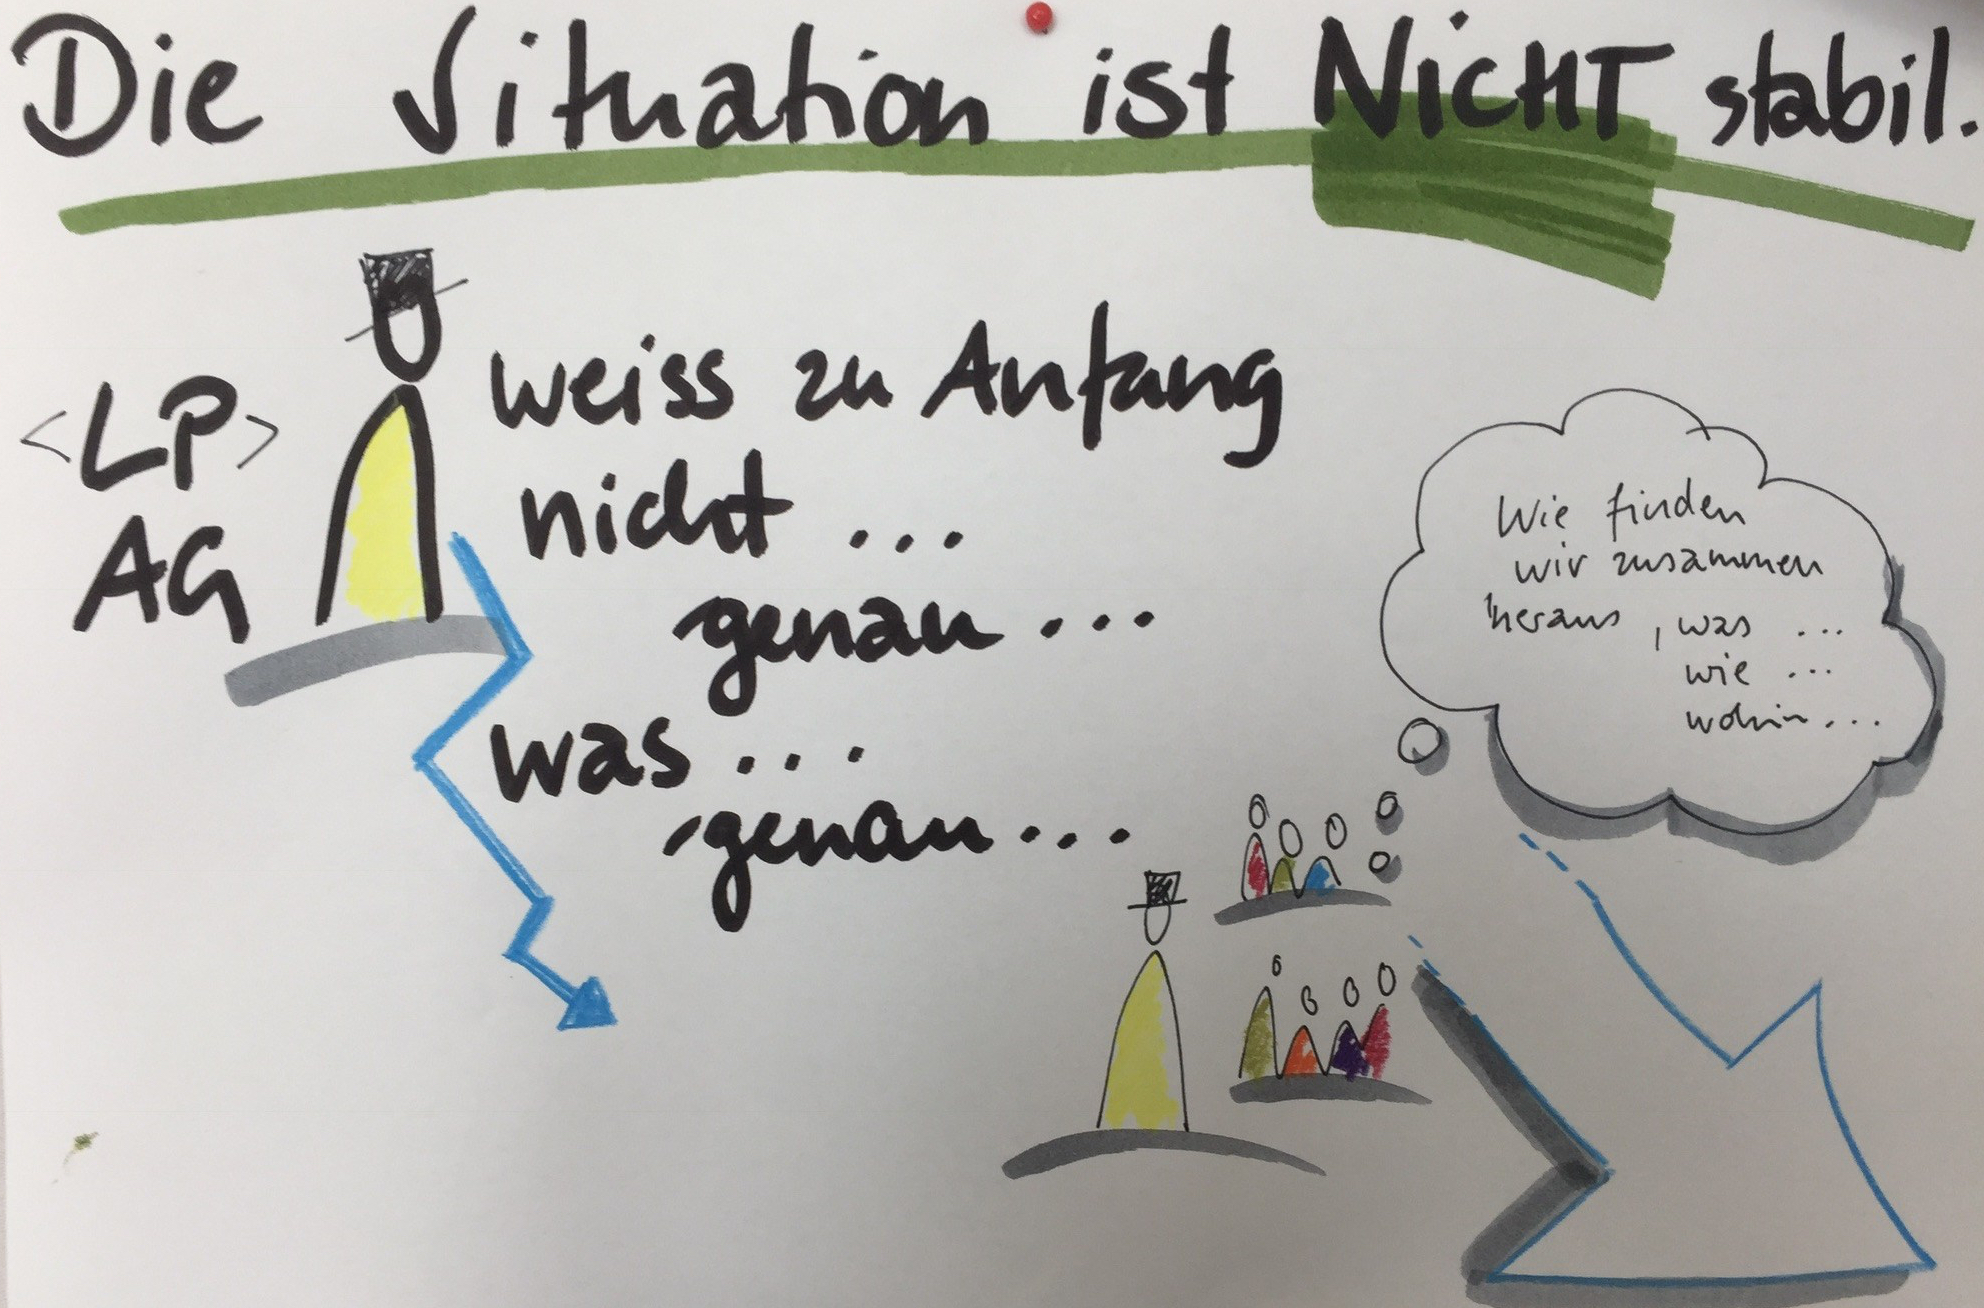 Die Situation ist NICHT stabil.
<LP>
AG
weiss zu Anfang
nicht ...
genau ...
was ...
genau ...
Wie finden
wir zusammen
heraus, was ...
wie ...
wohin ...